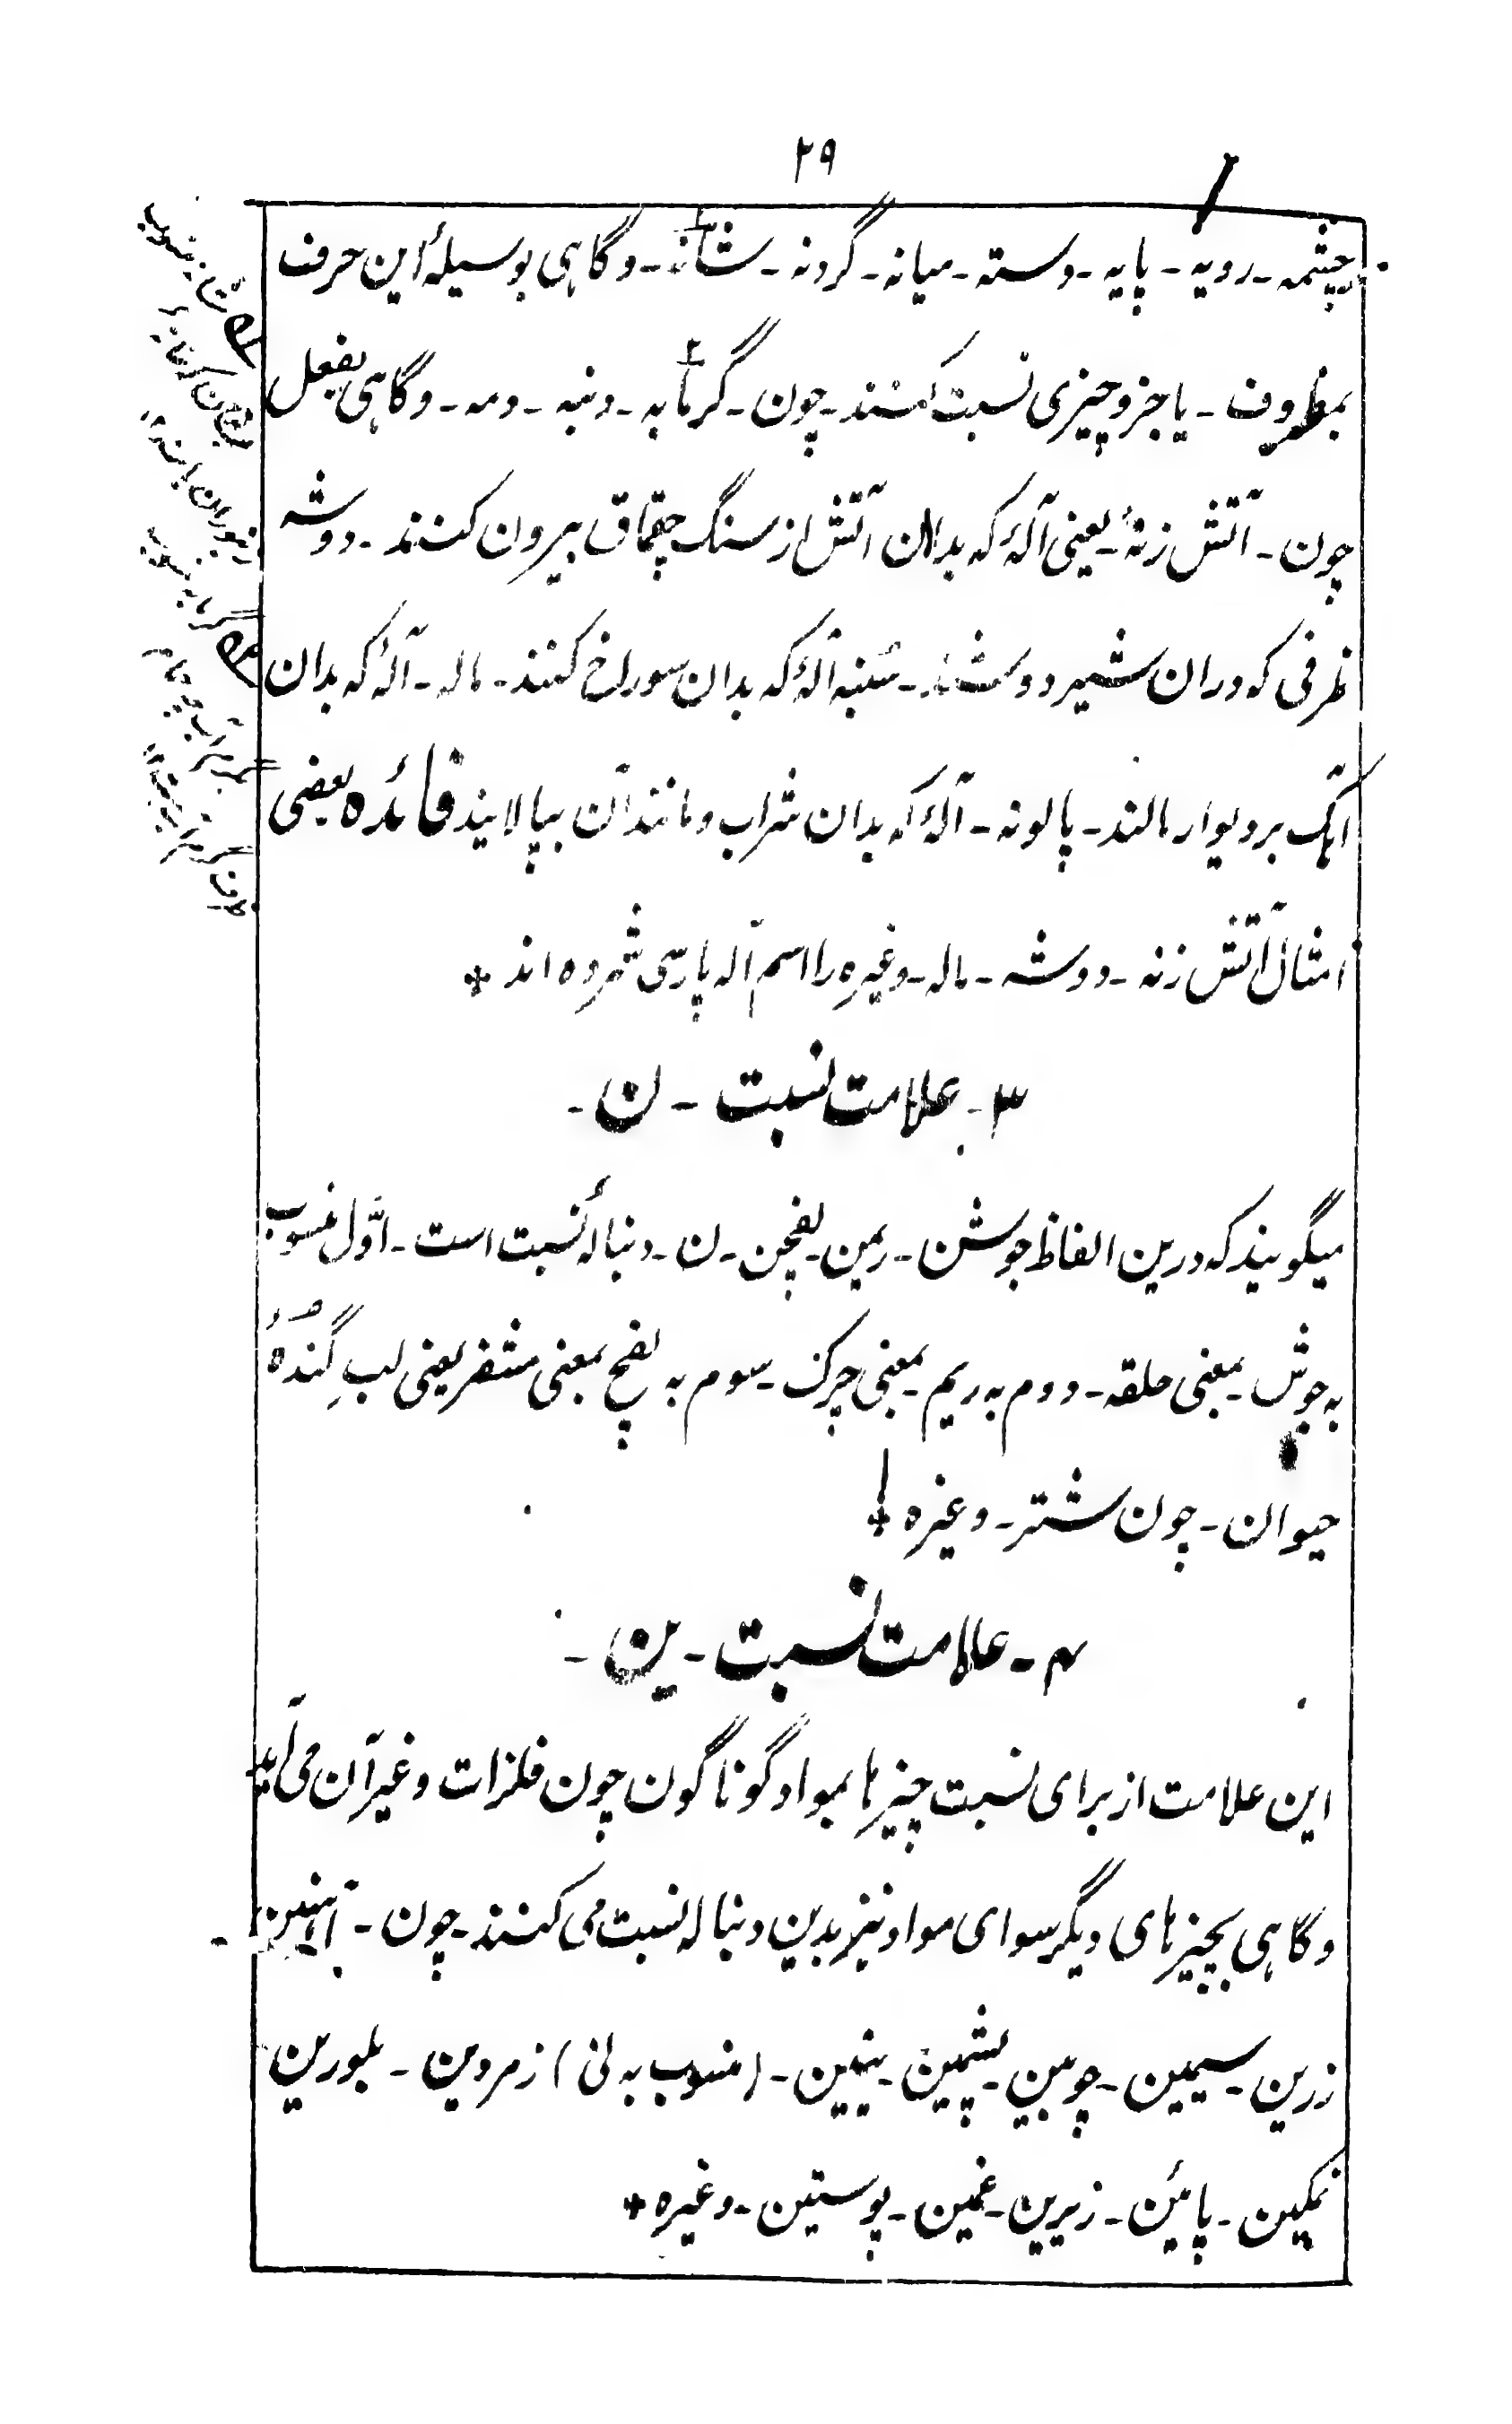 ۲۹
چشمه - رویه - پایه - دسته - میانه - گردنه - شانه - و گاهی بوسیلهٔ این حرف
بمظروف - یا جزو چیزی نسبت کنند - چون - گرمابه - دنبه - دمه - و گاهی بفعل
چون - آتش زنهٔ - یعنی آلهٔ که بدان آتش از سنگ چقماق بیرون کنند - دوشه
ظرفی که دران شیر دوشند - سُنبه آلهٔ که بدان سوراخ کنند - ماله - آلهٔ که بدان
آهک بر دیوار مالند - پالونه - آلهٔ که بدان شراب و مانند آن بپالایند فائده بعضی
امثال آتش زنه - دوشه - ماله - وغیره را اسم آله پارسی شمرده اند +
۳ - علامت نسبت - ن -
میگویند که درین الفاظ جوشن - ریمن - لفچن - ن - دنبالهٔ نسبت است - اوّل منسوب
به جوش - بمعنی حلقه - دوم به ریم - بمعنی چرک - سوم به لفچ بمعنی مشفر یعنی لبِ گُندهٔ
حیوان - چون شتر - وغیره +
۴ - علامت نسبت - ین -
این علامت از برای نسبت چیزها بمواد گوناگون چون فلزات و غیر آن می آید
و گاهی بچیزهای دیگر سوای مواد نیز بدین دنباله نسبت می کنند - چون - آهنین -
زرین - سیمین - چوبین - پشمین - نیین - (منسوب به نی) زمردین - بلورین
نمکین - پائین - زیرین - غمین - پوستین - وغیره +